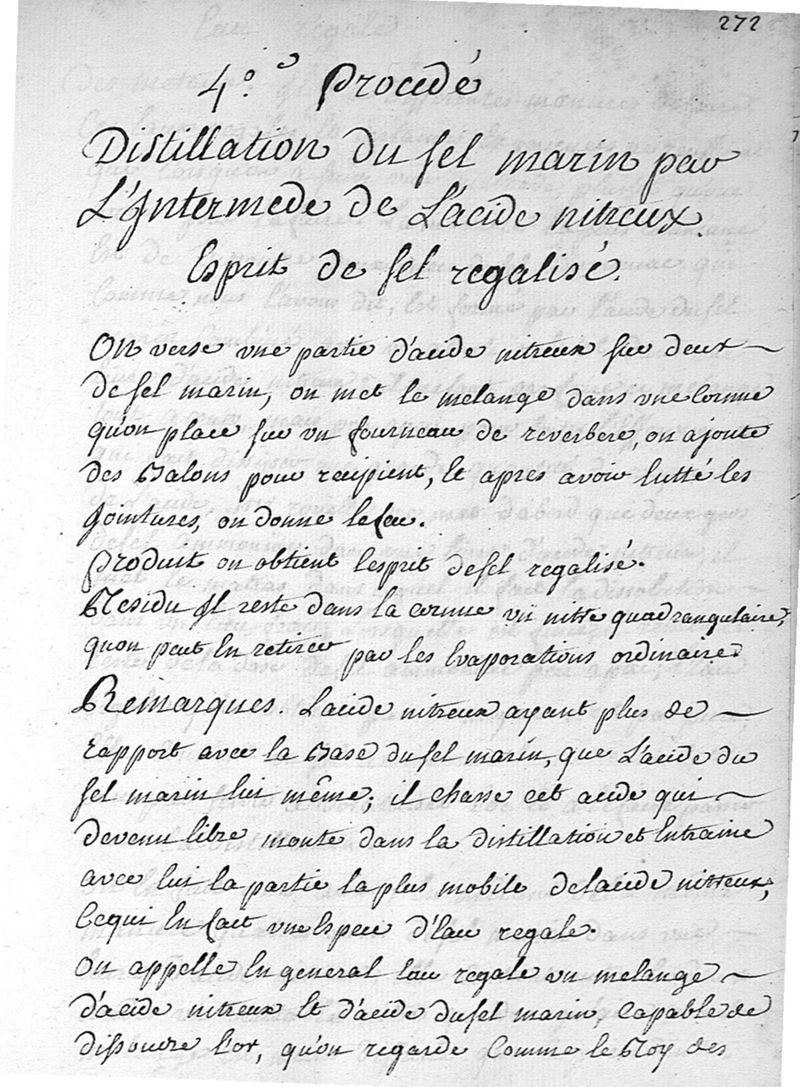 272
4.º Procedé
Distillation du sel marin par
L'Intermede de L'acide nitreux.
Esprit de sel regalisé.
On verse vne partie d'acide nitreux sur deux
de sel marin, on met le mélange dans vne Cornue
qu'on place sur vn fourneau de reverbere, on ajoute
des Balons pour recipient, et apres avoir lutté les
Jointures, on donne le feu.
Produit on obtient lesprit de sel regalisé.
Residu Il reste dans la cornue vn nitre quadrangulaire,
quon peut En retirer par les Evaporations ordinaires
Remarques. Lacide nitreux ayant plus de
rapport avec la Base du sel marin, que L'acide du
sel marin lui même; il chasse cet acide qui
devenu libre monte dans la distillation et Entraine
avec lui la partie la plus mobile de lacide nitreux,
Cequi En fait vne Espece d'Eau regale.
On appelle En general Eau regale vn melange
d'acide nitreux Et d'acide du sel marin, Capable de
dissoudre l'or, qu'on regarde Comme le Roy des